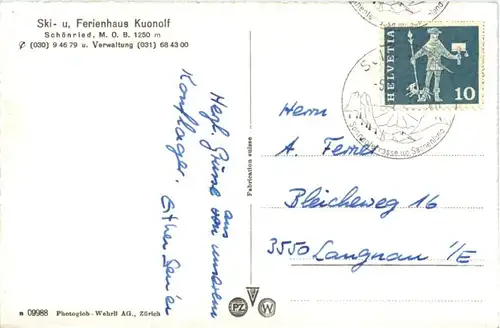 Ski- u, Ferienhaus Kuonolf
Schönried, M. O. B. 1250 m
✆ (030) 9 46 79 u. Verwaltung (031) 68 43 00
Herzl. Grüsse von unserem
aus
Konflager.
Fabrication suisse
HELVETIA
10
Herrn
A. Ferner
Bleicheweg 16
3550 Langnau i/E
n 09988 Photoglob-Wehrli AG., Zürich
PZ V W